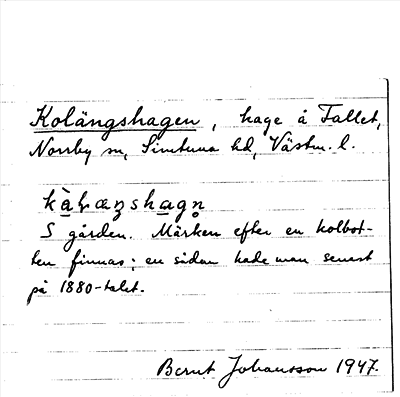 Kolängshagen, hage å Fallet,
Norrby sn, Simtuna hd, Västm. l.
kà̱ɭæŋsha̱gn̥
S gården. Märken efter en kolbot-
ten finnas; en sådan hade man senast
på 1880-talet.
Bernt Johansson 1947.